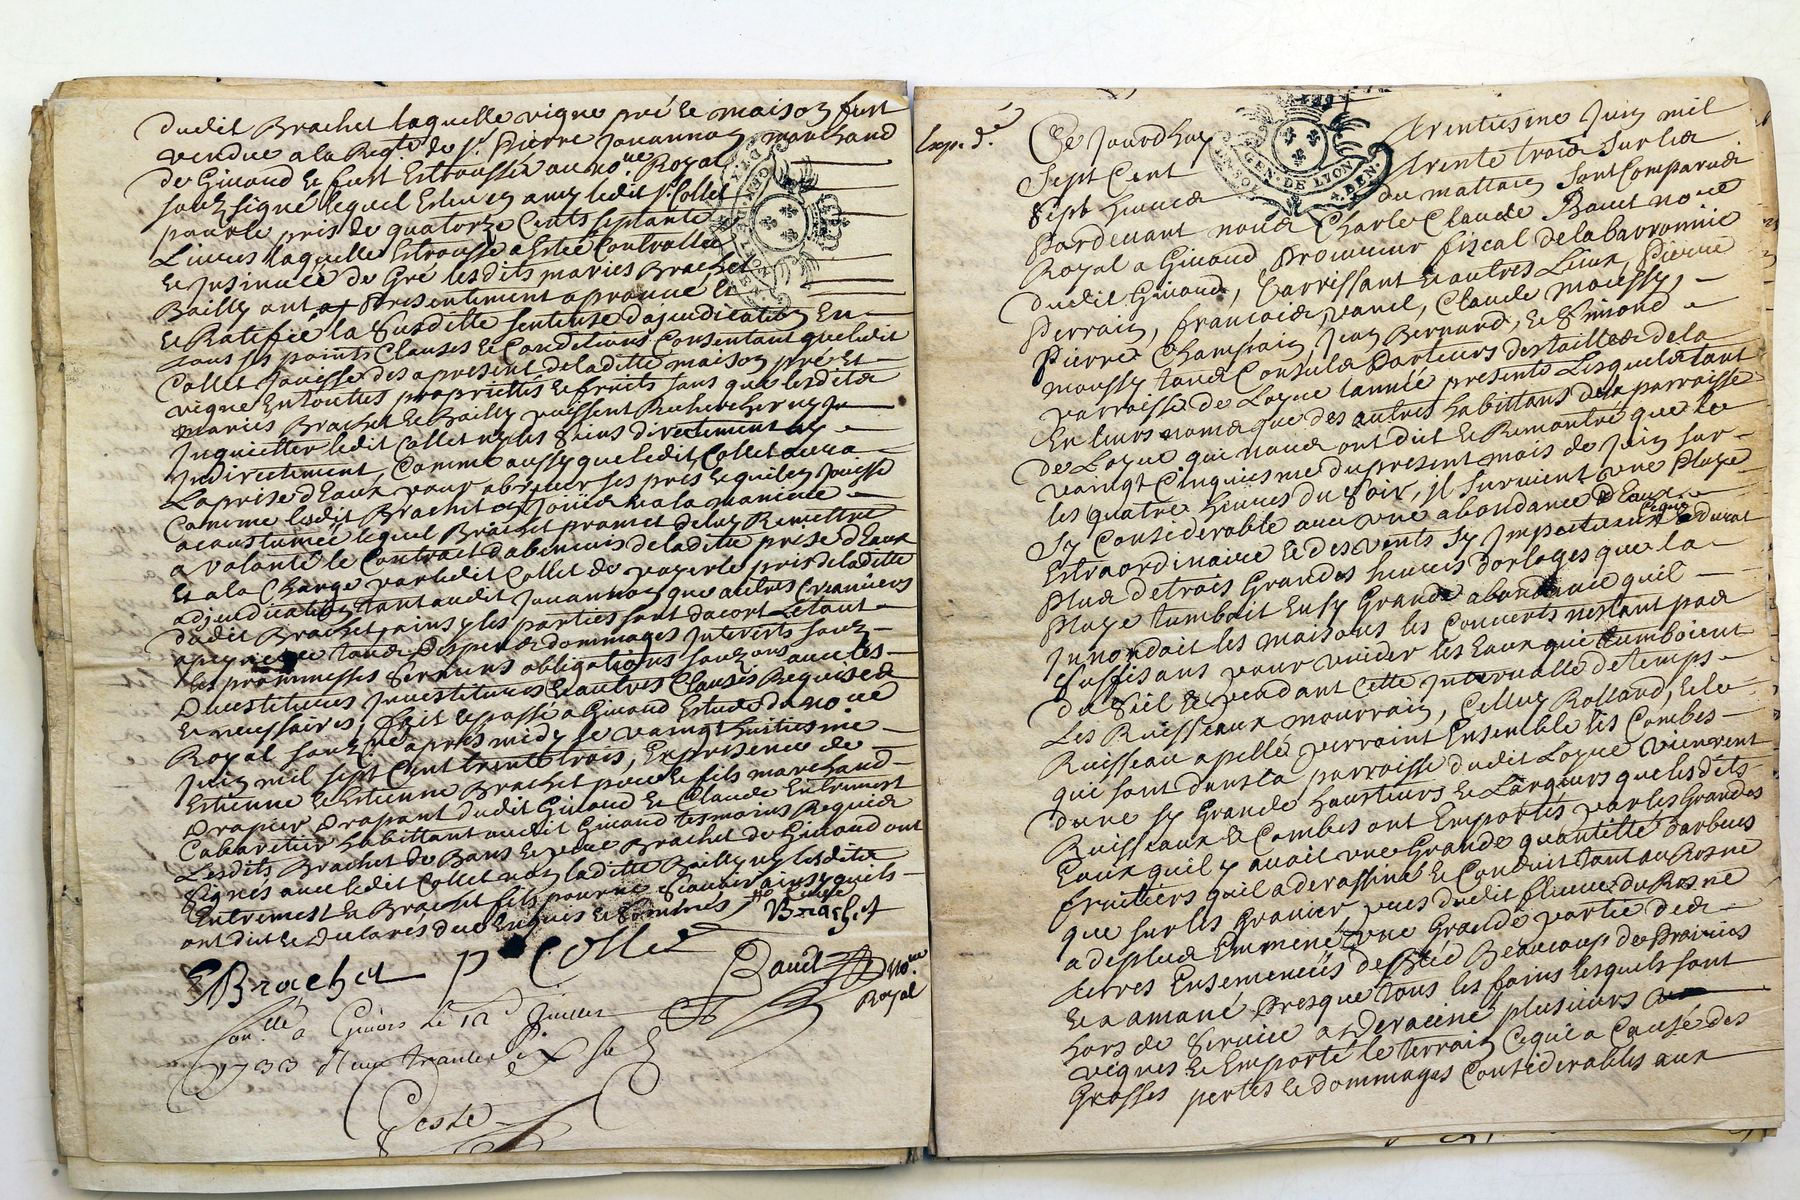 dudit Brachet laquelle vigne pré et maison furt
vendue a la Reqte de Sr. Pierre Jouannon marchand
de Givord et furt Estroussée au nore. Royal
souzsigné lequel Esleu en amy ledit Sr. Collet
pour le pris de quatorze Cents septante
Livres laquelle Estrousse a Esté Controllée
et Insinuée de Gré lesdits mariés Brachet
Bailly ont presentement aprouvé et
et Ratifié la Susditte sentense dajudication En
tous ses points Clauses et Conditions Consentant que ledit
Collet Jouisse des apresent de laditte maison pré et
vigne En toutes proprietés et fruits sans que lesdits
mariés Brachet et Bailly puissent Rechercher ny In
Inquietter ledit Collet ny les Siens directement ny
Indirectement, Comme aussy que ledit Collet aura
La prise d'Eaux pour abreuer ses prés et quil en Jouisse
Comme ledit Brachet a Joüi à la maniere
acoustumée lequel Brachet promet de luy Remettre
a volonté le Contract dabenevis de laditte prise d'Eaux
Et a la Charge par ledit Collet de payer le pris de laditte
adjudication tant audit Jouannon que autres Creanciers
dudit Brachet, ainsy les parties sont dacort Létant
a peyne de tous despens dommages Interets souz
les prommesses serments obligations souzmissions
Investitures et autres Clauses Requises
et necessaires, fait et passé a Givord Estude du nore.
Royal souzné apres midy le vaingt huitiesme
Juin mil sept Cent trente trois, En presence de
Estienne et Estienne Brachet pere et fils marchand
Drapier Drapant dudit Givord et Claude Entremest
Cabaretier habittant audit Givord tesmoins Requis
Lesdits Brachet de Bans et pere Brachet de Givord ont
Signés avec ledit Collet non laditte Bailly ny lesdits
Entremest et Brachet fils pour ne Scavoir ainsy quils
ont dit et Declarés de ce Enquis et Sommés
Brachet
EBrachet p Collet Bauit nore. Royal
Conllé a Givors le 12 Juillet
1733
Exp. d.
Ce Jourdhuy trentiesme Juin mil
Sept Cent trente trois sur les
Sept heures du mattin Sont Comparus
Pardevant nous Charle Claude Bauit nore
Royal a Givord Procureur fiscal de la barronnie
dudit Givord, et autres Lieux, Pierre
Perrain, francois vanel, Claude moussy,
Pierre Champain Jean Bernard, et Simond
moussy tous Consuls Porteurs des tailles de la
parroisse de Loyre lannée presente Lesquels tant
En leurs noms que des autres habittans de la parroisse
de Loyre qui nous ont dit et Remontré que le
vaingt Cinquiesme du present mois de Juin sur
les quatre heures du Soir, il survient une Pluye
Sy Considerable avec une abondance d'Eaux
Extraordinaire et des vents Sy Impetueux ce que a durat
Plus de trois Grandes heures dorloges que la
Pluye tumboit En sy Grande abondance quil
Innondoit les maisons les Concerts nestant pas
Suffisans pour vuider les Eaux qui tumboient
du Siel et pendant Cette Intervalle de temps
Les Ruisseaux mourrain, Celluy Rolland, et le
Ruisseau apellé verraint Ensemble les Combes
qui sont dans la parroisse dudit Loyre vienrent
dune sy Grande hausteurs et Largeurs que lesdits
Ruisseaux et Combes ont Emportés par les Grandes
Eaux quil y avoit une Grande quantitté darbres
fruitiers quil a derassiné et Conduit tant au Rosne
que sur les Gravier pres dudit fleuve du Rosne
a de plus Emmené une Grande partie des
terres Ensemencés de Bled Beaucoup de Prairies
et a amané Presque tous les foins lesquels sont
hors de Service a Deraciné plusieurs
vignes et Emporté le terrain Ce qui a Causé des
Grosses pertes et dommages Considerables aux
GEN. DE LYON